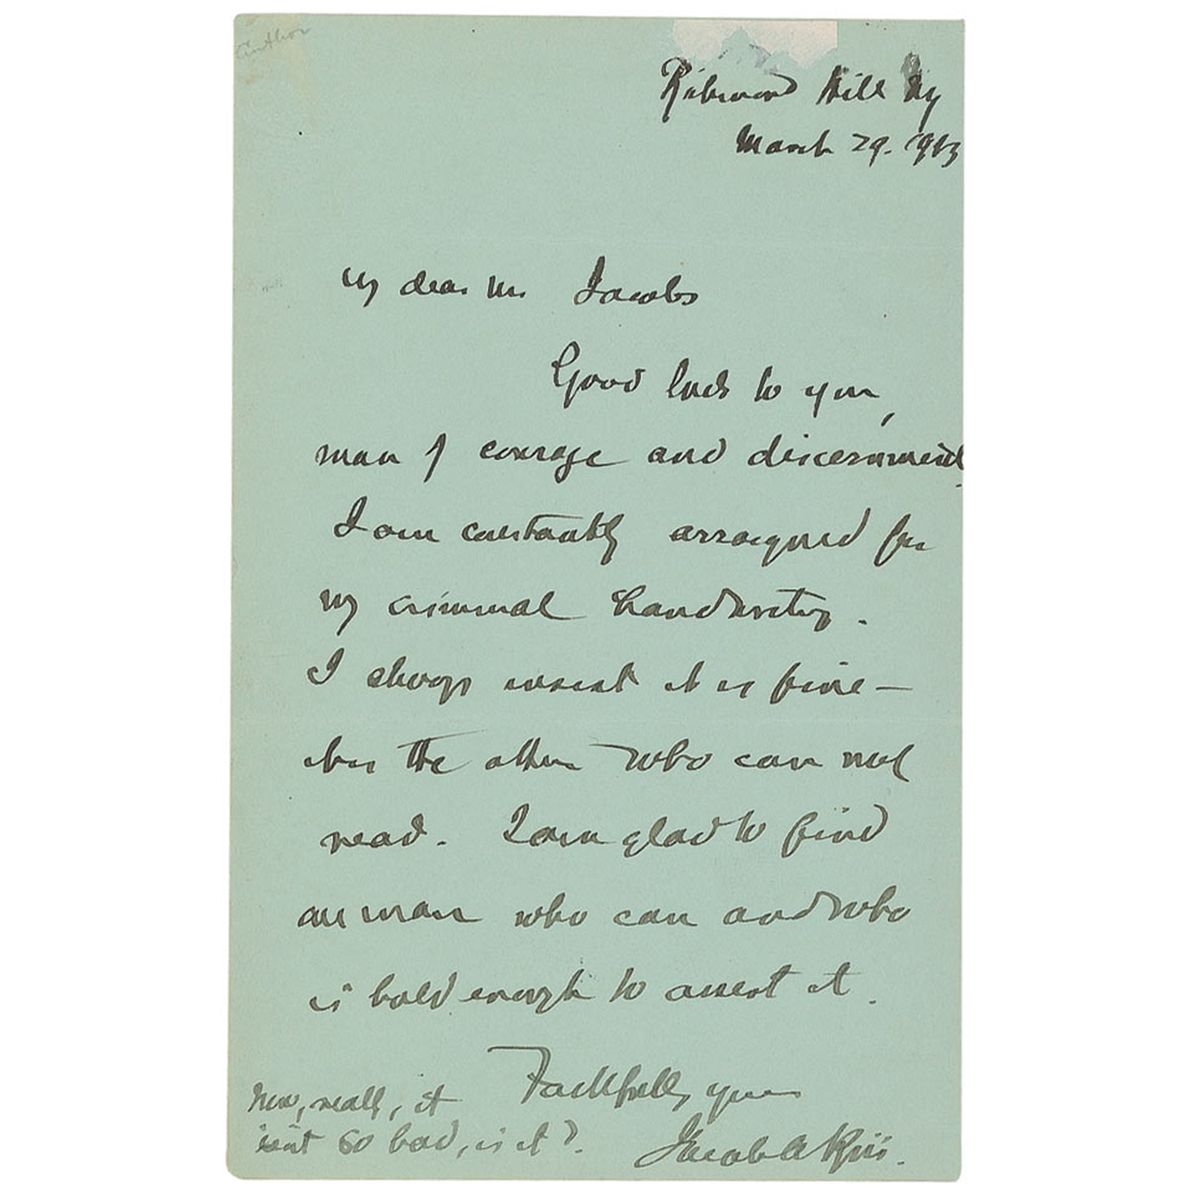 author
Richmond Hill NY
March 29. 1913
My dear Mr. Jacobs
Good luck to you,
man of courage and discernment.
I am constantly arraigned for
my criminal handwriting.
I always insist it is fine—
it is the others who can not
read. I am glad to find
a man who can and who
is bold enough to assert it.
Faithfully yours
Jacob A Riis.
Now, really, it
isn't so bad, is it?